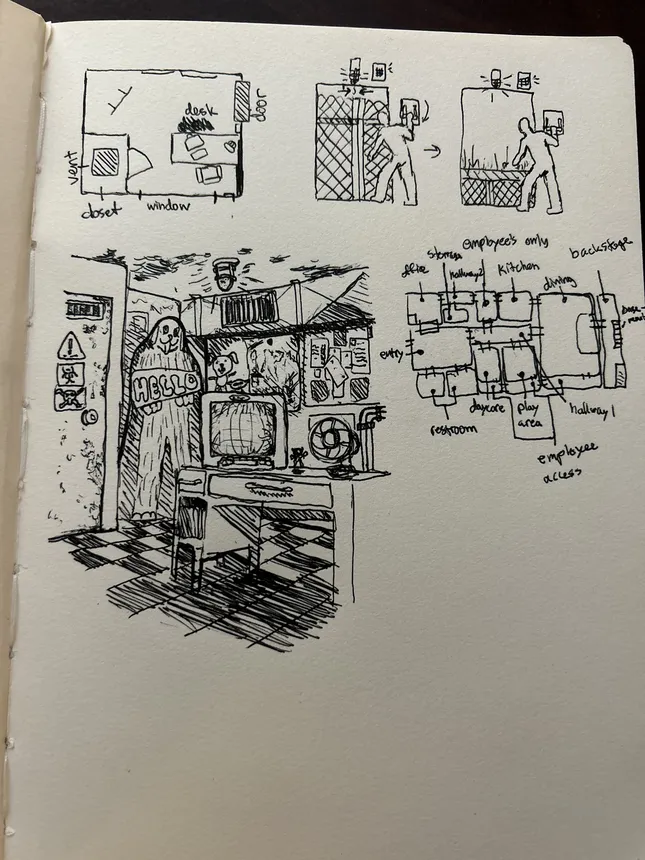 desk
door
vent
closet
window
HELLO
office
storage
hallway2
employee's only
kitchen
dining
backstage
entry
restroom
daycare
play
area
hallway 1
employee
access